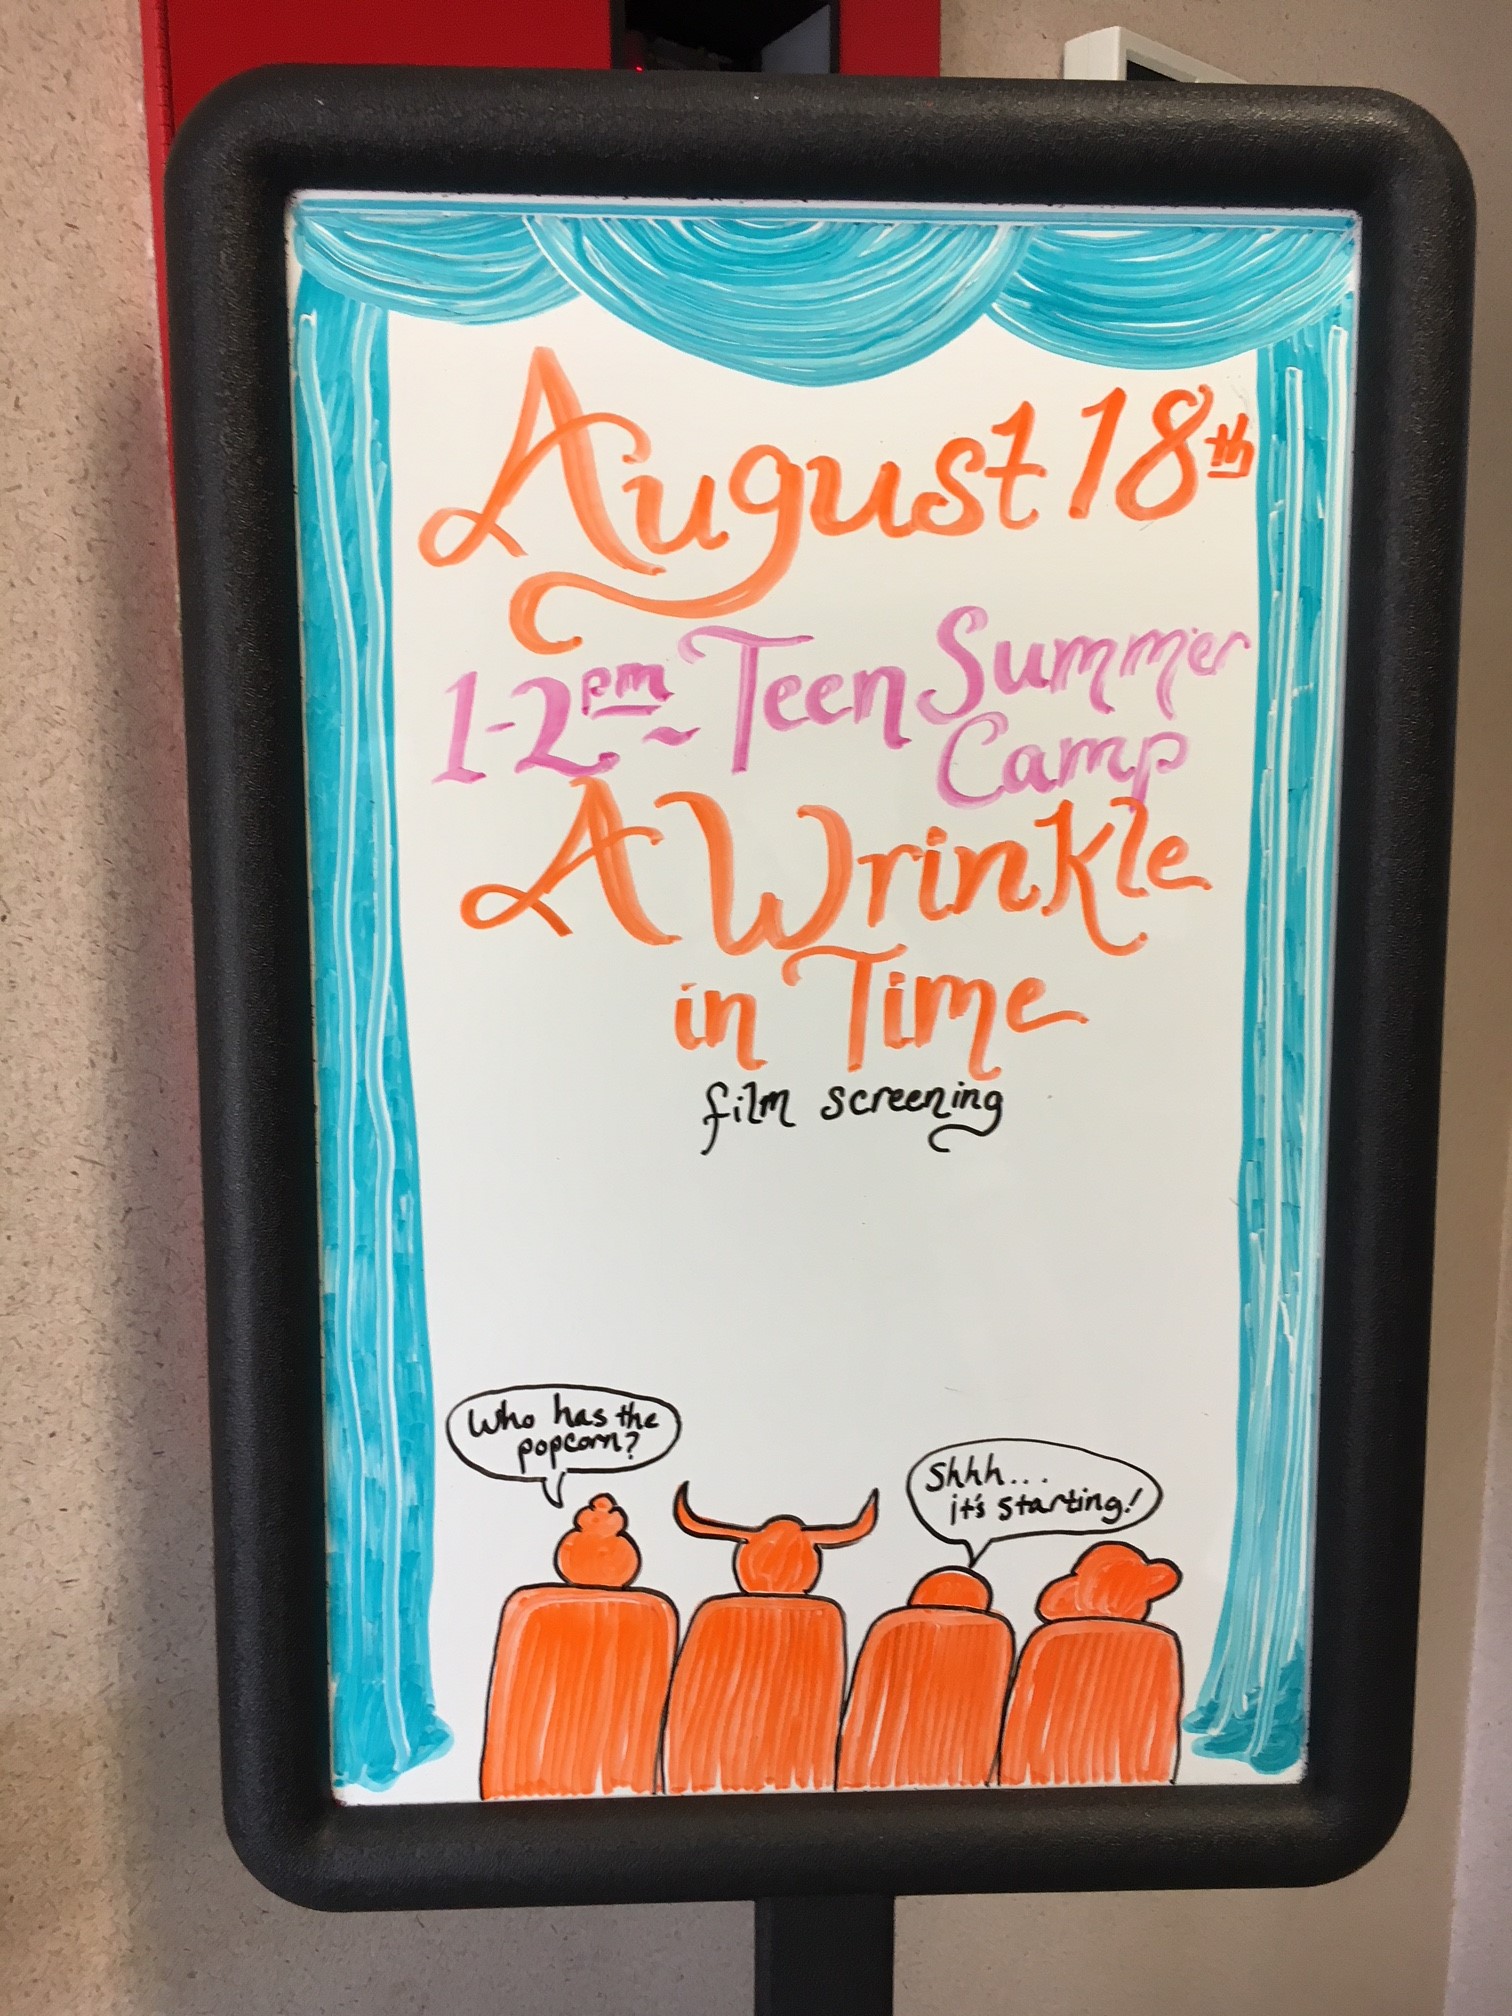 August 18th
1-2pm ~ Teen Summer
Camp
A Wrinkle
in Time
film screening
Who has the
popcorn?
Shhh...
it's starting!